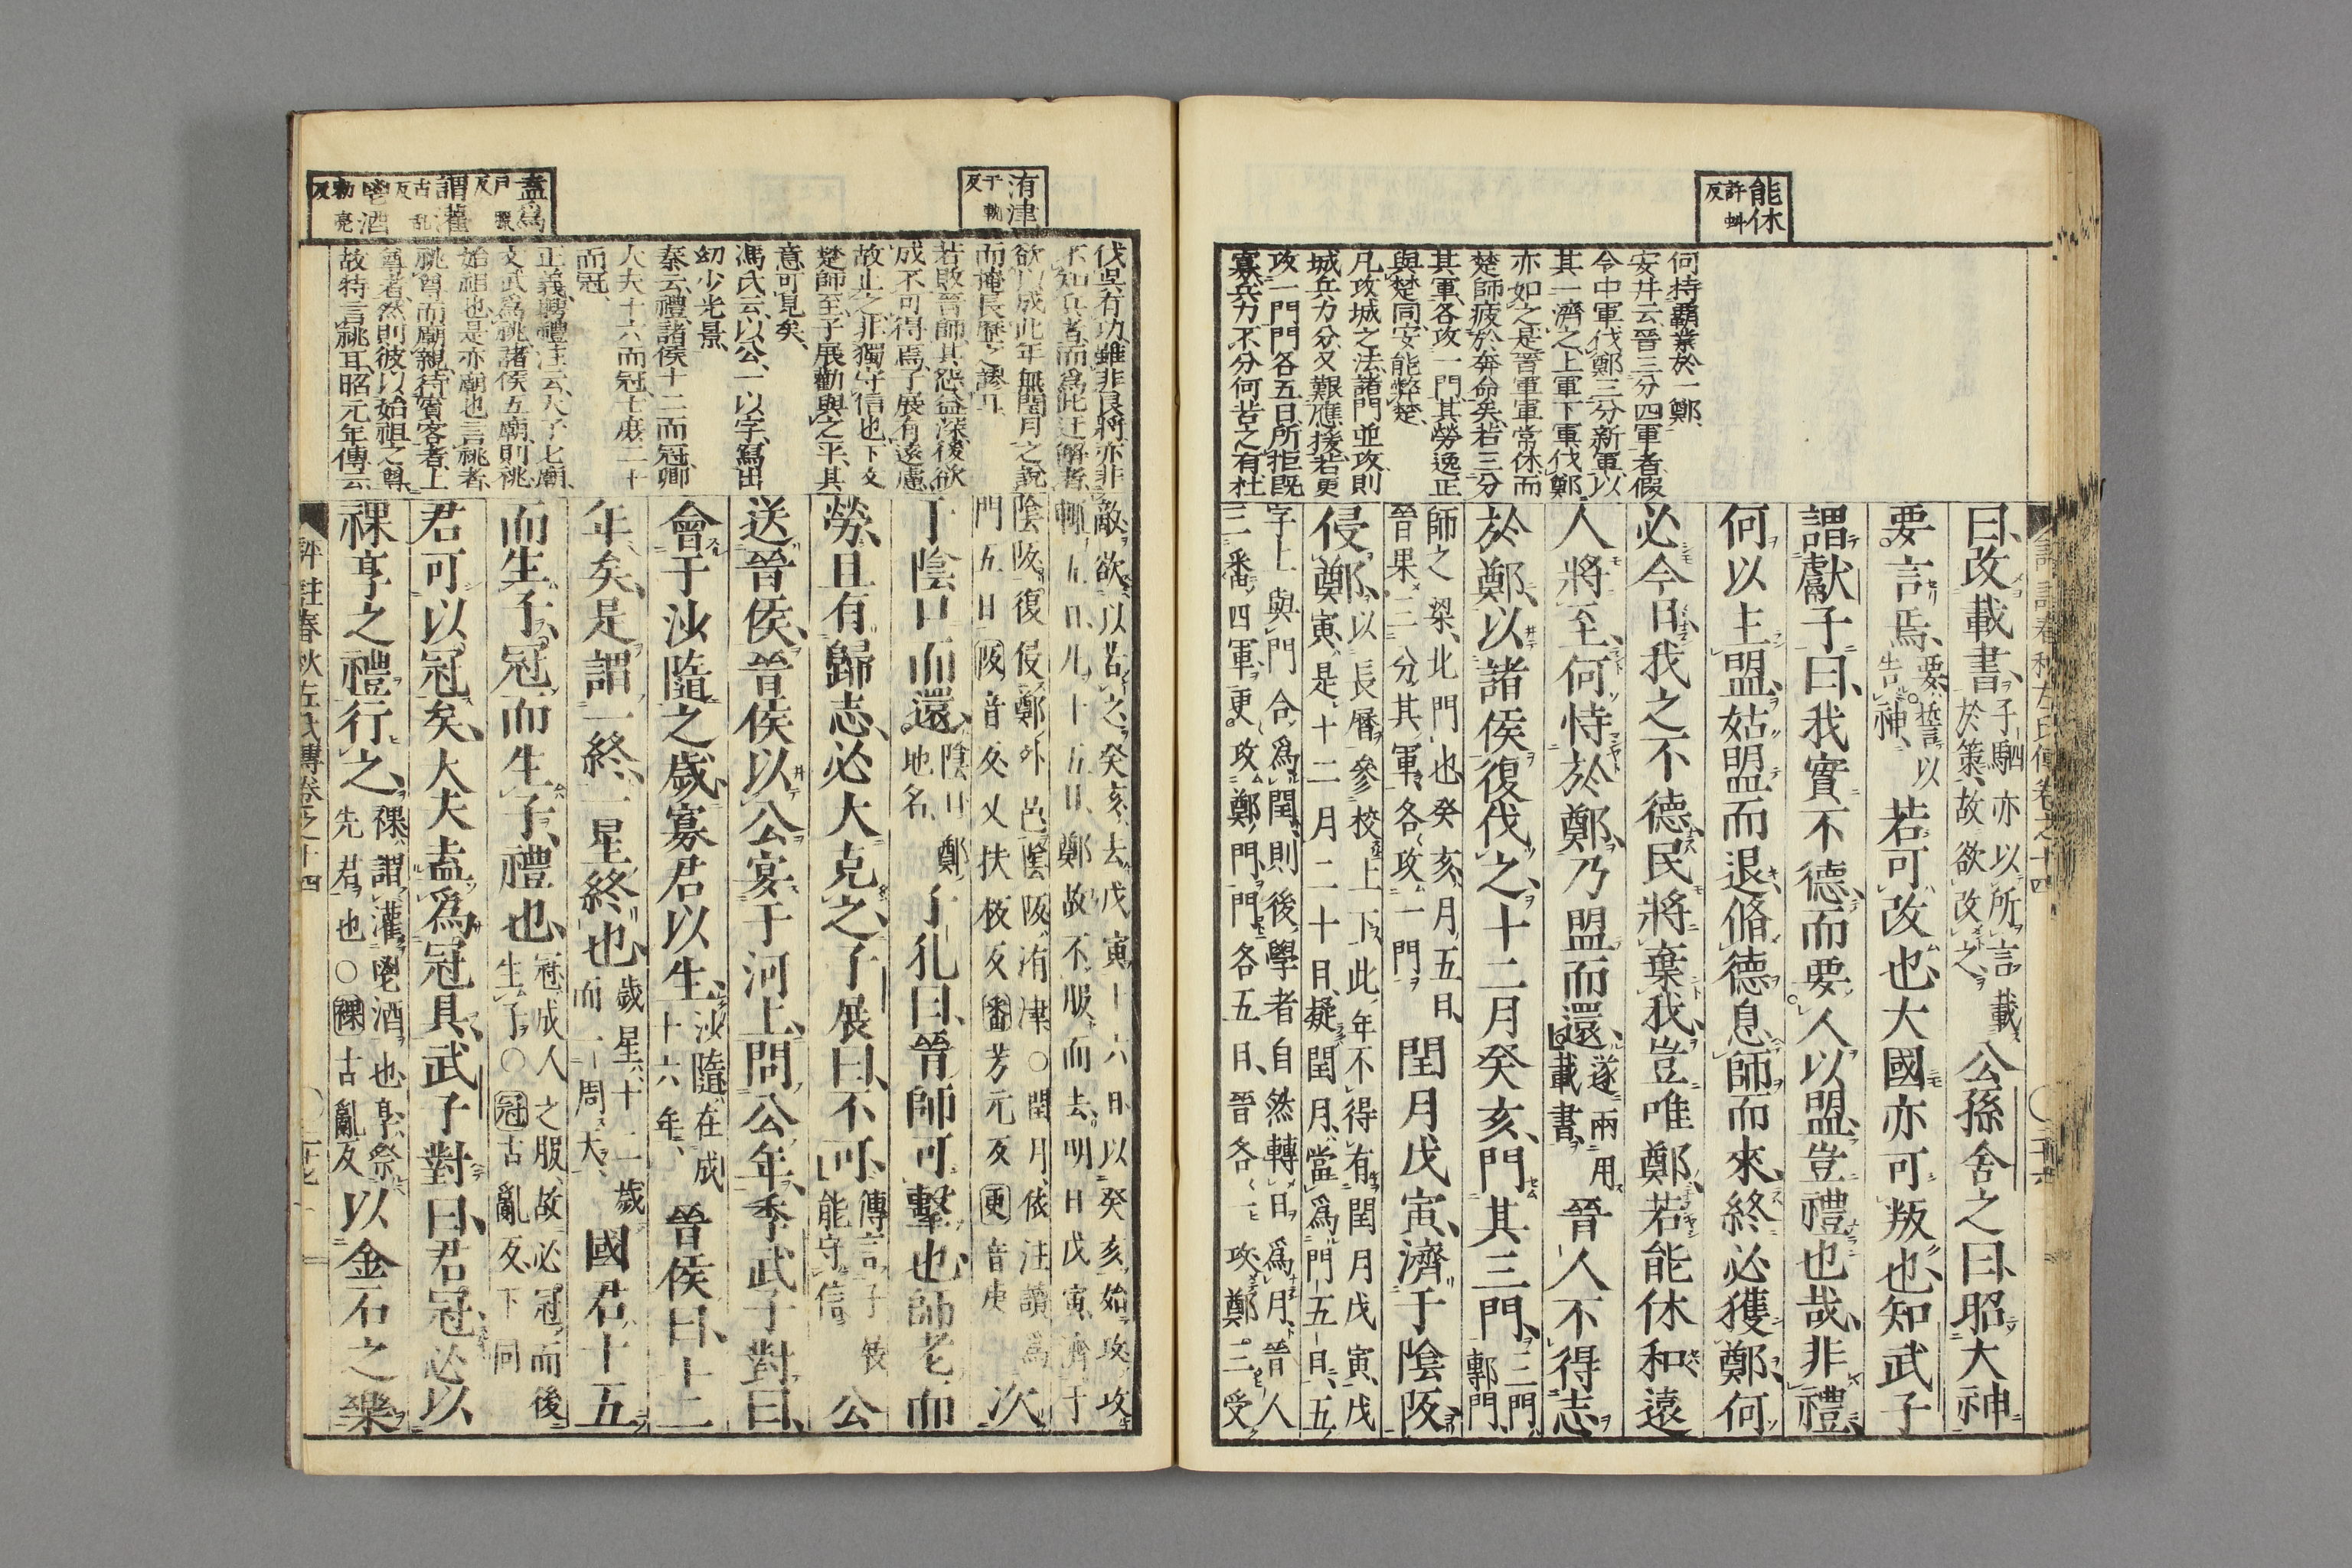 能休
許蚪
反
何恃霸業於一鄭、
安井云、晉三分四軍者、假
令中軍伐鄭、三分新軍、以
其一濟之、上軍下軍伐鄭
亦如之、是晉軍軍常休、而
楚師疲於奔命矣、若三分
其軍、各攻一門、其勞逸正
與楚同、安能弊楚、
凡攻城之法、諸門並攻、則
城兵力分、又艱應援、若更
攻一門、門各五日、所拒既
寡、兵力不分、何苦之有、杜
曰、改載書、
子駟亦以所言載
於策、故欲改之、
公孫舍之曰、昭大神
要言焉、
要、誓以
告神、
若可改也、大國亦可叛也、知武子
謂獻子曰、我實不德、而要人以盟、豈禮也哉、非禮、
何以主盟、姑盟而退、脩德息師而來、終必獲鄭、何
必今日、我之不德、民將棄我、豈唯鄭、若能休和、遠
人將至、何恃於鄭、乃盟而還、
遂兩用
載書、
晉人不得志
於鄭、以諸侯復伐之、十二月癸亥、門其三門、
三門、
鄟門、
師之梁、北門也、癸亥、月五日、
晉果三分其軍、各攻一門、
閏月戊寅、濟于陰阪、
侵鄭、
以長曆參校上下、此年不得有閏月戊寅、戊
寅、是十二月二十日、疑閏月當爲門五日、五
字上與門合爲閏、則後學者自然轉日爲月、晉人
三番四軍、更攻鄭門、門各五日、晉各一攻、鄭三受
評註春秋左氏傳卷之十四
洧津
于軌
反
蓋爲
戶臘
反
謂灌
古乱
反
鬯酒
勑亮
反
伐吳有功、雖非良將、亦非
不知兵者、而爲此迂解者、
欲以成此年無閏月之說、
而掩長歷之謬耳、
若敗晉師、其怨益深、後欲
成不可得焉、子展有遠慮、
故止之、非獨守信也、下文
楚師至、子展勸與之平、其
意可見矣、
馮氏云、以公、一以字、寫出
幼少光景、
秦云、禮、諸侯十二而冠、卿
大夫十六而冠、士庶二十
而冠、
正義、聘禮注云、天子七廟、
文武爲祧、諸侯五廟、則祧
始祖也、是亦廟也、言祧者、
祧尊而廟親、待賓客者、上
尊者、然則彼以始祖之尊、
故特言祧耳、昭元年傳云
敵、欲以苦之、癸亥去戊寅十六日、以癸亥始攻、攻
輒五日、凡十五日、鄭故不服而去、明日戊寅、濟于
陰阪、復侵鄭外邑、陰阪、洧津○閏月、依注讀爲
門五日、阪音反、又扶板反、番芳元反、更音庚
次
于陰口而還、
陰口、鄭
地名、
子孔曰、晉師可擊也、師老而
勞、且有歸志、必大克之、子展曰、不可、
傳言子展
能守信
公
送晉侯、晉侯以公宴于河上、問公年、季武子對曰、
會于沙隨之歲、寡君以生、
沙隨、在成
十六年、
晉侯曰、十二
年矣、是謂一終、一星終也、
歲星、十二歲
而一周天、
國君十五
而生子、冠而生子、禮也、
冠、成人之服、故必冠而後
生子○冠古亂反、下同
君可以冠矣、大夫盍爲冠具、武子對曰、君冠、必以
祼享之禮行之、
祼、謂灌鬯酒也、享、祭
先君也○祼古亂反
以金石之樂
評註春秋左氏傳卷之十四